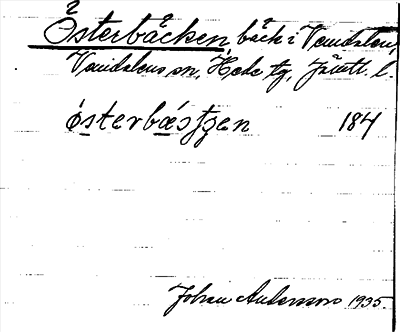 Österbäcken, bäck i Vemdalen,
Vemdalens sn, Hede tg, Jämtl. l.
österbæsʃʒen 184
Johan Andersson 1935